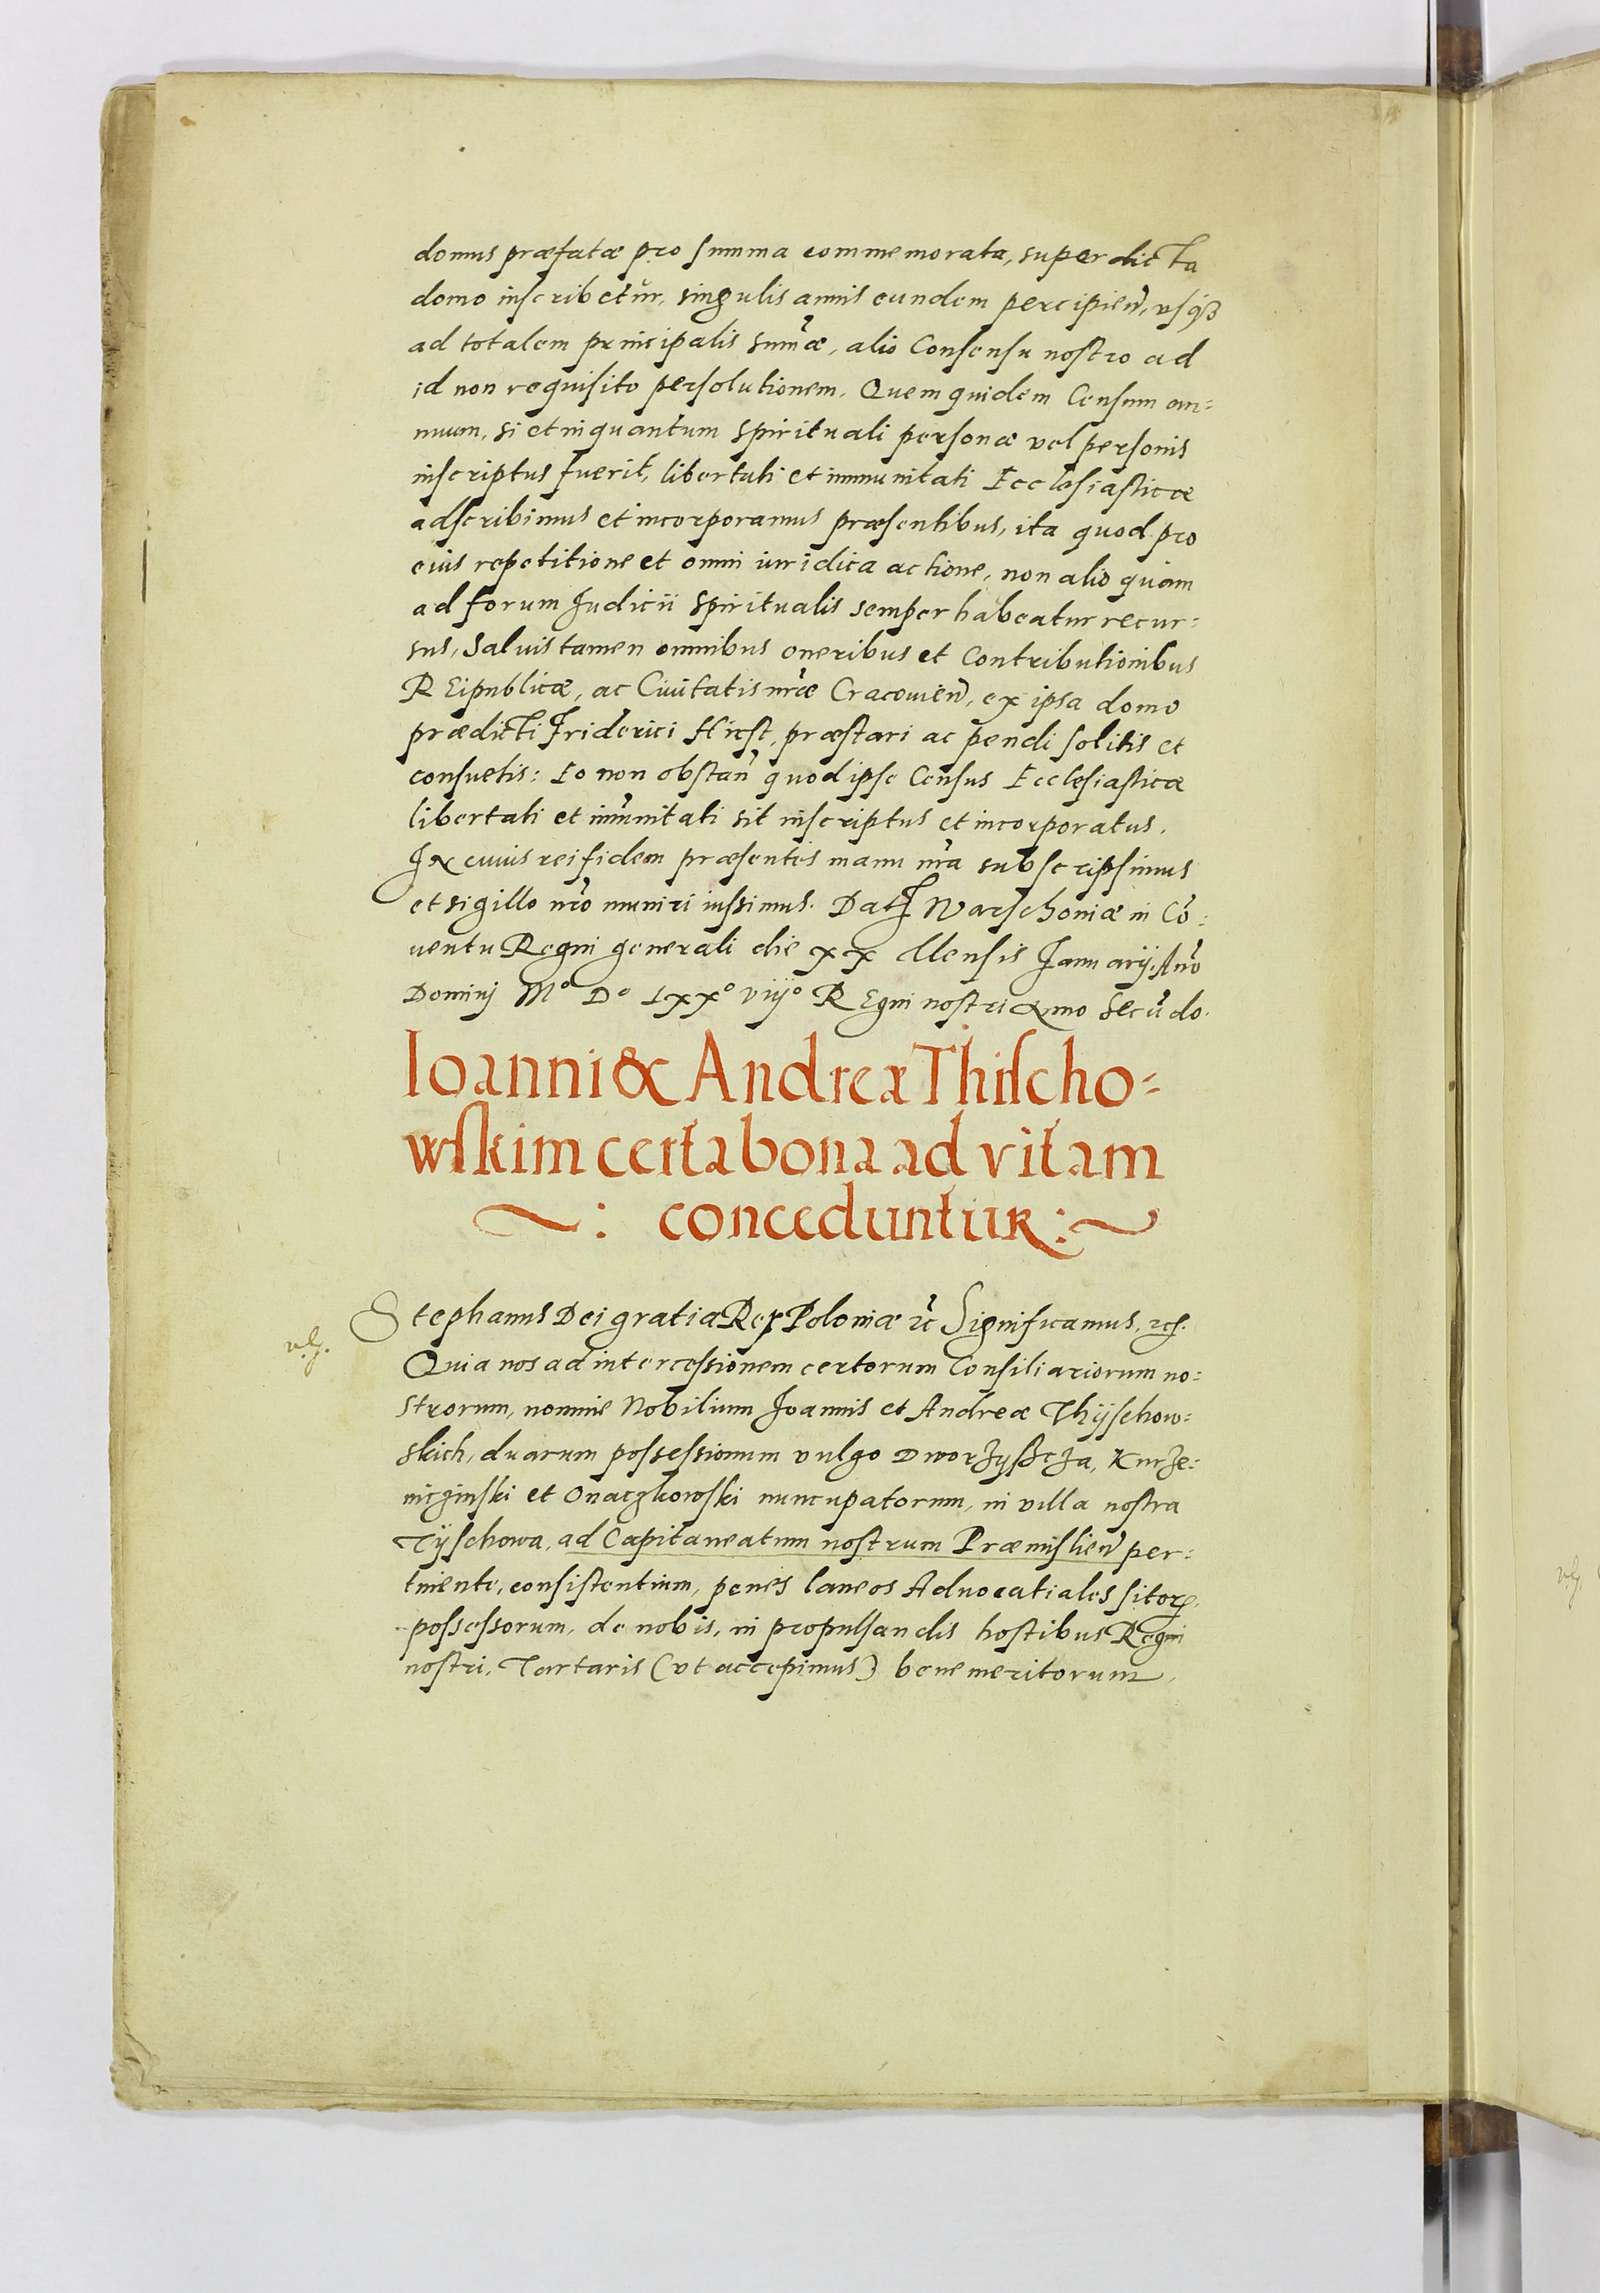 domus præfatæ pro summa commemorata, super dicta
domo inscribetur, singulis annis eundem percipien̄, usq3
ad totalem principalis sum̄æ, alio Consensu nostro ad
id non requisito persolutionem. Quem quidem Censum an=
nuum, si et inquantum spirituali personæ vel personis
inscriptus fuerit, libertati et immunitati Ecclesiasticæ
adscribimus et incorporamus præsentibus, ita quod pro
eius repetitione et omni iuridica actione, non alio quam
ad forum Judicii spiritualis semper habeatur recur=
sus, Salvis tamen omnibus oneribus et Contributionibus
REipublicæ, ac Civitatis nr̄æ Cracovien̄, ex ipsa domo
prædicti Friderici Hirst, præstari ac pendi solitis et
consuetis: Eo non obstan̄ quod ipse Census Ecclesiasticæ
libertati et im̄unitati sit inscriptus et incorporatus.
IN cuius rei fidem præsentes manu nr̄a subscripsimus
et sigillo nr̄o muniri iussimus. Datꝭ Warschoviæ in Cō=
ventu Regni generali die xx Mensis Januarij Anno
Dominj Mº Dº Lxxº viijº REgni nostri Anno Secūdo.
Ioanni & Andreæ Thischo=
wskim certa bona ad vitam
~: conceduntur :~
v.g.
Stephanus Dei gratia Rex Poloniæ &c̄ Significamus, &c.
Quia nos ad intercessionem certorum Consiliariorum no=
strorum, nomine Nobilium Joannis et Andreæ Thÿschow=
skich, duarum possessionum vulgo Dworzyscza, Kurze=
niczinski et Onaczkowski nuncupatorum, in villa nostra
Tÿschowa, ad Capitaneatum nostrum Præmislien̄ per=
tinente, consistentium, penes laneos Advocatiales sitorꝝ
possessorum, de nobis, in propulsandis hostibus Regni
nostri, Tartaris (vt accepimus) bene meritorum,